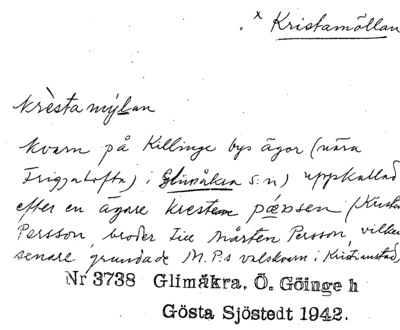 x Kristamöllan
krèstamýlan
kvarn på Killinge bys ägor (nära
Friggatofta) i Glimåkra s:n) uppkallad
efter en ägare krestem pǽrsen (Krist
Persson, broder till Mårten Persson, vilken
senare grundade M.P:s valskvarn i Kristianstad)
Nr 3738 Glimåkra, Ö. Göinge h
Gösta Sjöstedt 1942.